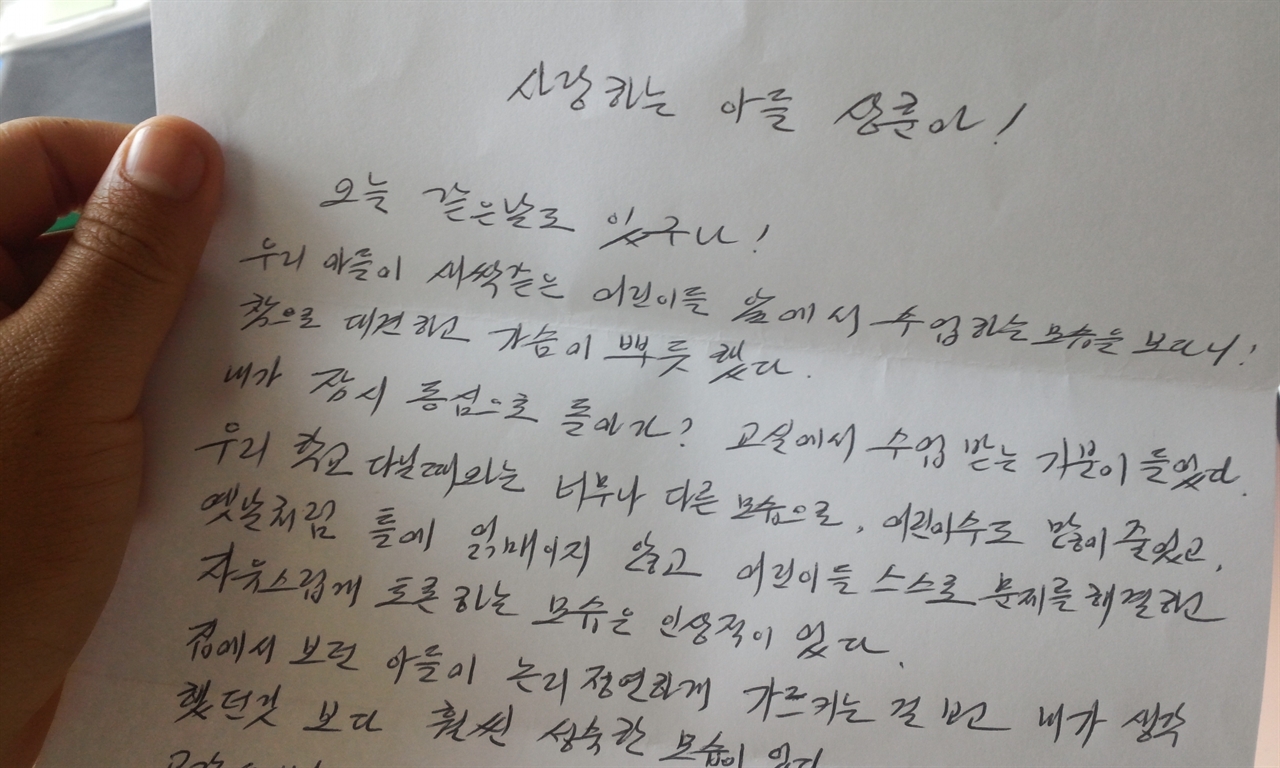 사랑하는 아들 상훈아!
오늘 같은날도 있구나!
우리 아들이 새싹같은 어린이들 앞에서 수업하는 모습을 보다니!
참으로 대견하고 가슴이 뿌듯했다.
내가 잠시 동심으로 돌아가? 교실에서 수업 받는 기분이 들었다.
우리 학교 다닐때와는 너무나 다른 모습으로, 어린이수도 많이 줄었고,
옛날처럼 틀에 얽매이지 않고 어린이들 스스로 문제를 해결하고
자유스럽게 토론하는 모습은 인상적이었다.
집에서 보던 아들이 논리정연하게 가르키는 걸 보고 내가 생각
했던것 보다 훨씬 성숙한 모습이었다